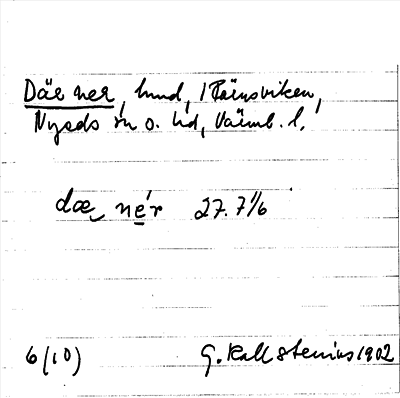 Där ner, hmd, i Rämsviken,
Nyeds sn o. hd, Värml. l.
dæ nér 27. 7/6
6 (10) G. Kallstenius 1902